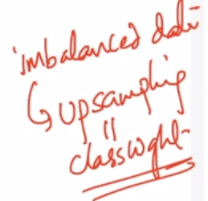 imbalanced data
↳ upsampling
||
class weight